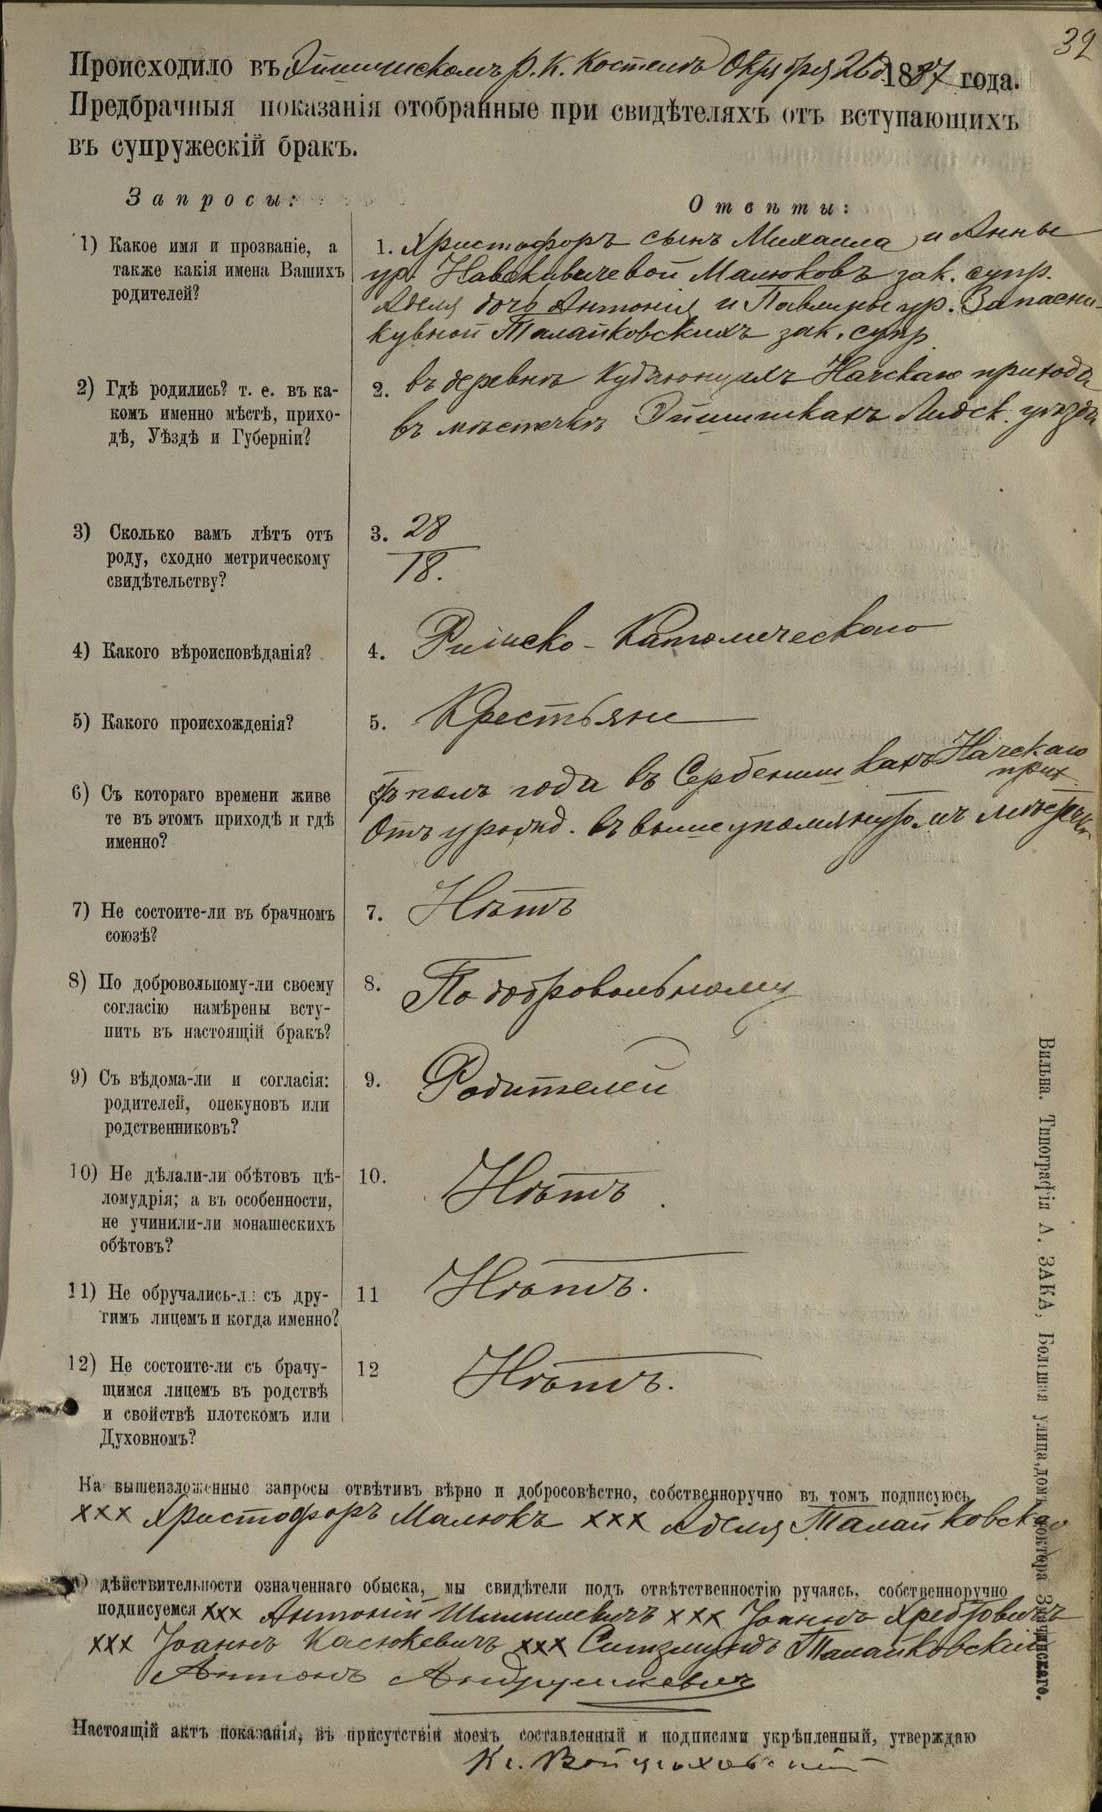 32
Происходило въ Эйшишскомъ Р. К. Костелѣ Октября 26 д. 1887 года.
Предбрачныя показанія отобранные при свидѣтеляхъ отъ вступающихъ
въ супружескій бракъ.
Запросы:
Отвѣты:
1) Какое имя и прозваніе, а
также какія имена Вашихъ
родителей?
1. Христофоръ сынъ Михаила и Анны
ур. Малюковъ зак. супр.
Аделя дочь Антонія и Павлины ур.
Талайковскихъ зак. супр.
2) Гдѣ родились? т. е. въ ка-
комъ именно мѣстѣ, прихо-
дѣ, Уѣздѣ и Губерніи?
2. въ деревнѣ Начскаго прихода
въ мѣстечкѣ Эйшишкахъ Лидск. уѣзда
3) Сколько вамъ лѣтъ отъ
роду, сходно метрическому
свидѣтельству?
3. 28
18.
4) Какого вѣроисповѣданія?
4. Римско-Католическаго
5) Какого происхожденія?
5. Крестьяне
6) Съ котораго времени живе
те въ этомъ приходѣ и гдѣ
именно?
полъ года въ Начскаго
прих
Отъ урожд. въ вышеупомянутомъ мѣстечкѣ
7) Не состоите-ли въ брачномъ
союзѣ?
7. Нѣтъ
8) По добровольному-ли своему
согласію намѣрены всту-
пить въ настоящій бракъ?
8. По добровольному
9) Съ вѣдома-ли и согласія:
родителей, опекуновъ или
родственниковъ?
9. Родителей
10) Не дѣлали-ли обѣтовъ цѣ-
ломудрія; а въ особенности,
не учинили-ли монашескихъ
обѣтовъ?
10. Нѣтъ.
11) Не обручались-ли съ дру-
гимъ лицемъ и когда именно?
11 Нѣтъ.
12) Не состоите-ли съ брачу-
щимся лицемъ въ родствѣ
и свойствѣ плотскомъ или
Духовномъ?
12 Нѣтъ.
На вышеизложенные запросы отвѣтивъ вѣрно и добросовѣстно, собственноручно въ томъ подписуюсь
xxx Христофоръ Малюкъ xxx Аделя Талайковская
О дѣйствительности означеннаго обыска, мы свидѣтели подъ отвѣтственностію ручаясь, собственноручно
подписуемся xxx Антоній xxx Іоаннъ Хребтовичъ
xxx Іоаннъ Касюкевичъ xxx Сигизмундъ Талайковскій
Антонъ Андрушкевичъ
Настоящій актъ показанія, въ присутствіи моемъ составленный и подписями укрѣпленный, утверждаю
Кс. Войцѣховскій
Вильна. Типографія А. ЗАКА, Большая улица, домъ доктора